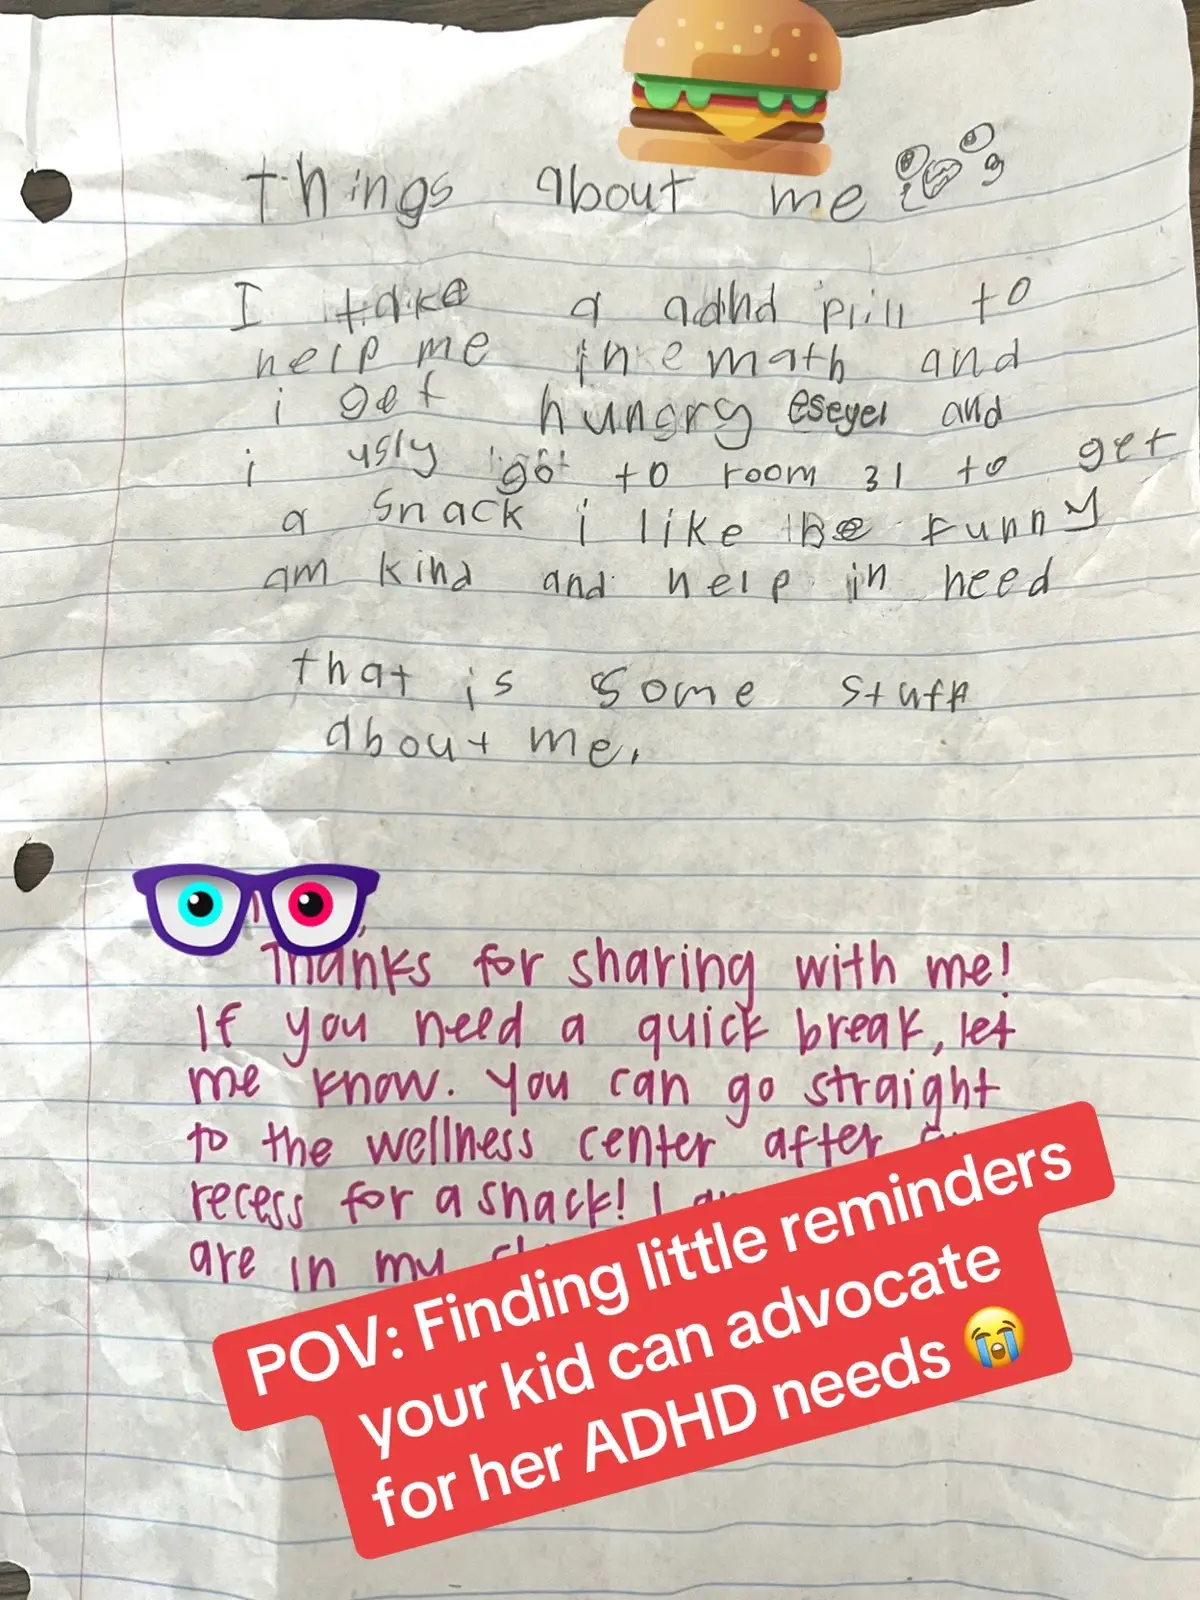 things about me
I take a adhd pill to
help me in math and
i get hungry eseyel and
i usly got to room 31 to get
a snack i like Be funny
am kind and help in need
that is some stuff
about me.
Thanks for sharing with me!
If you need a quick break, let
me know. You can go straight
to the wellness center after
recess for a snack! I
are in my
POV: Finding little reminders
your kid can advocate
for her ADHD needs 😭